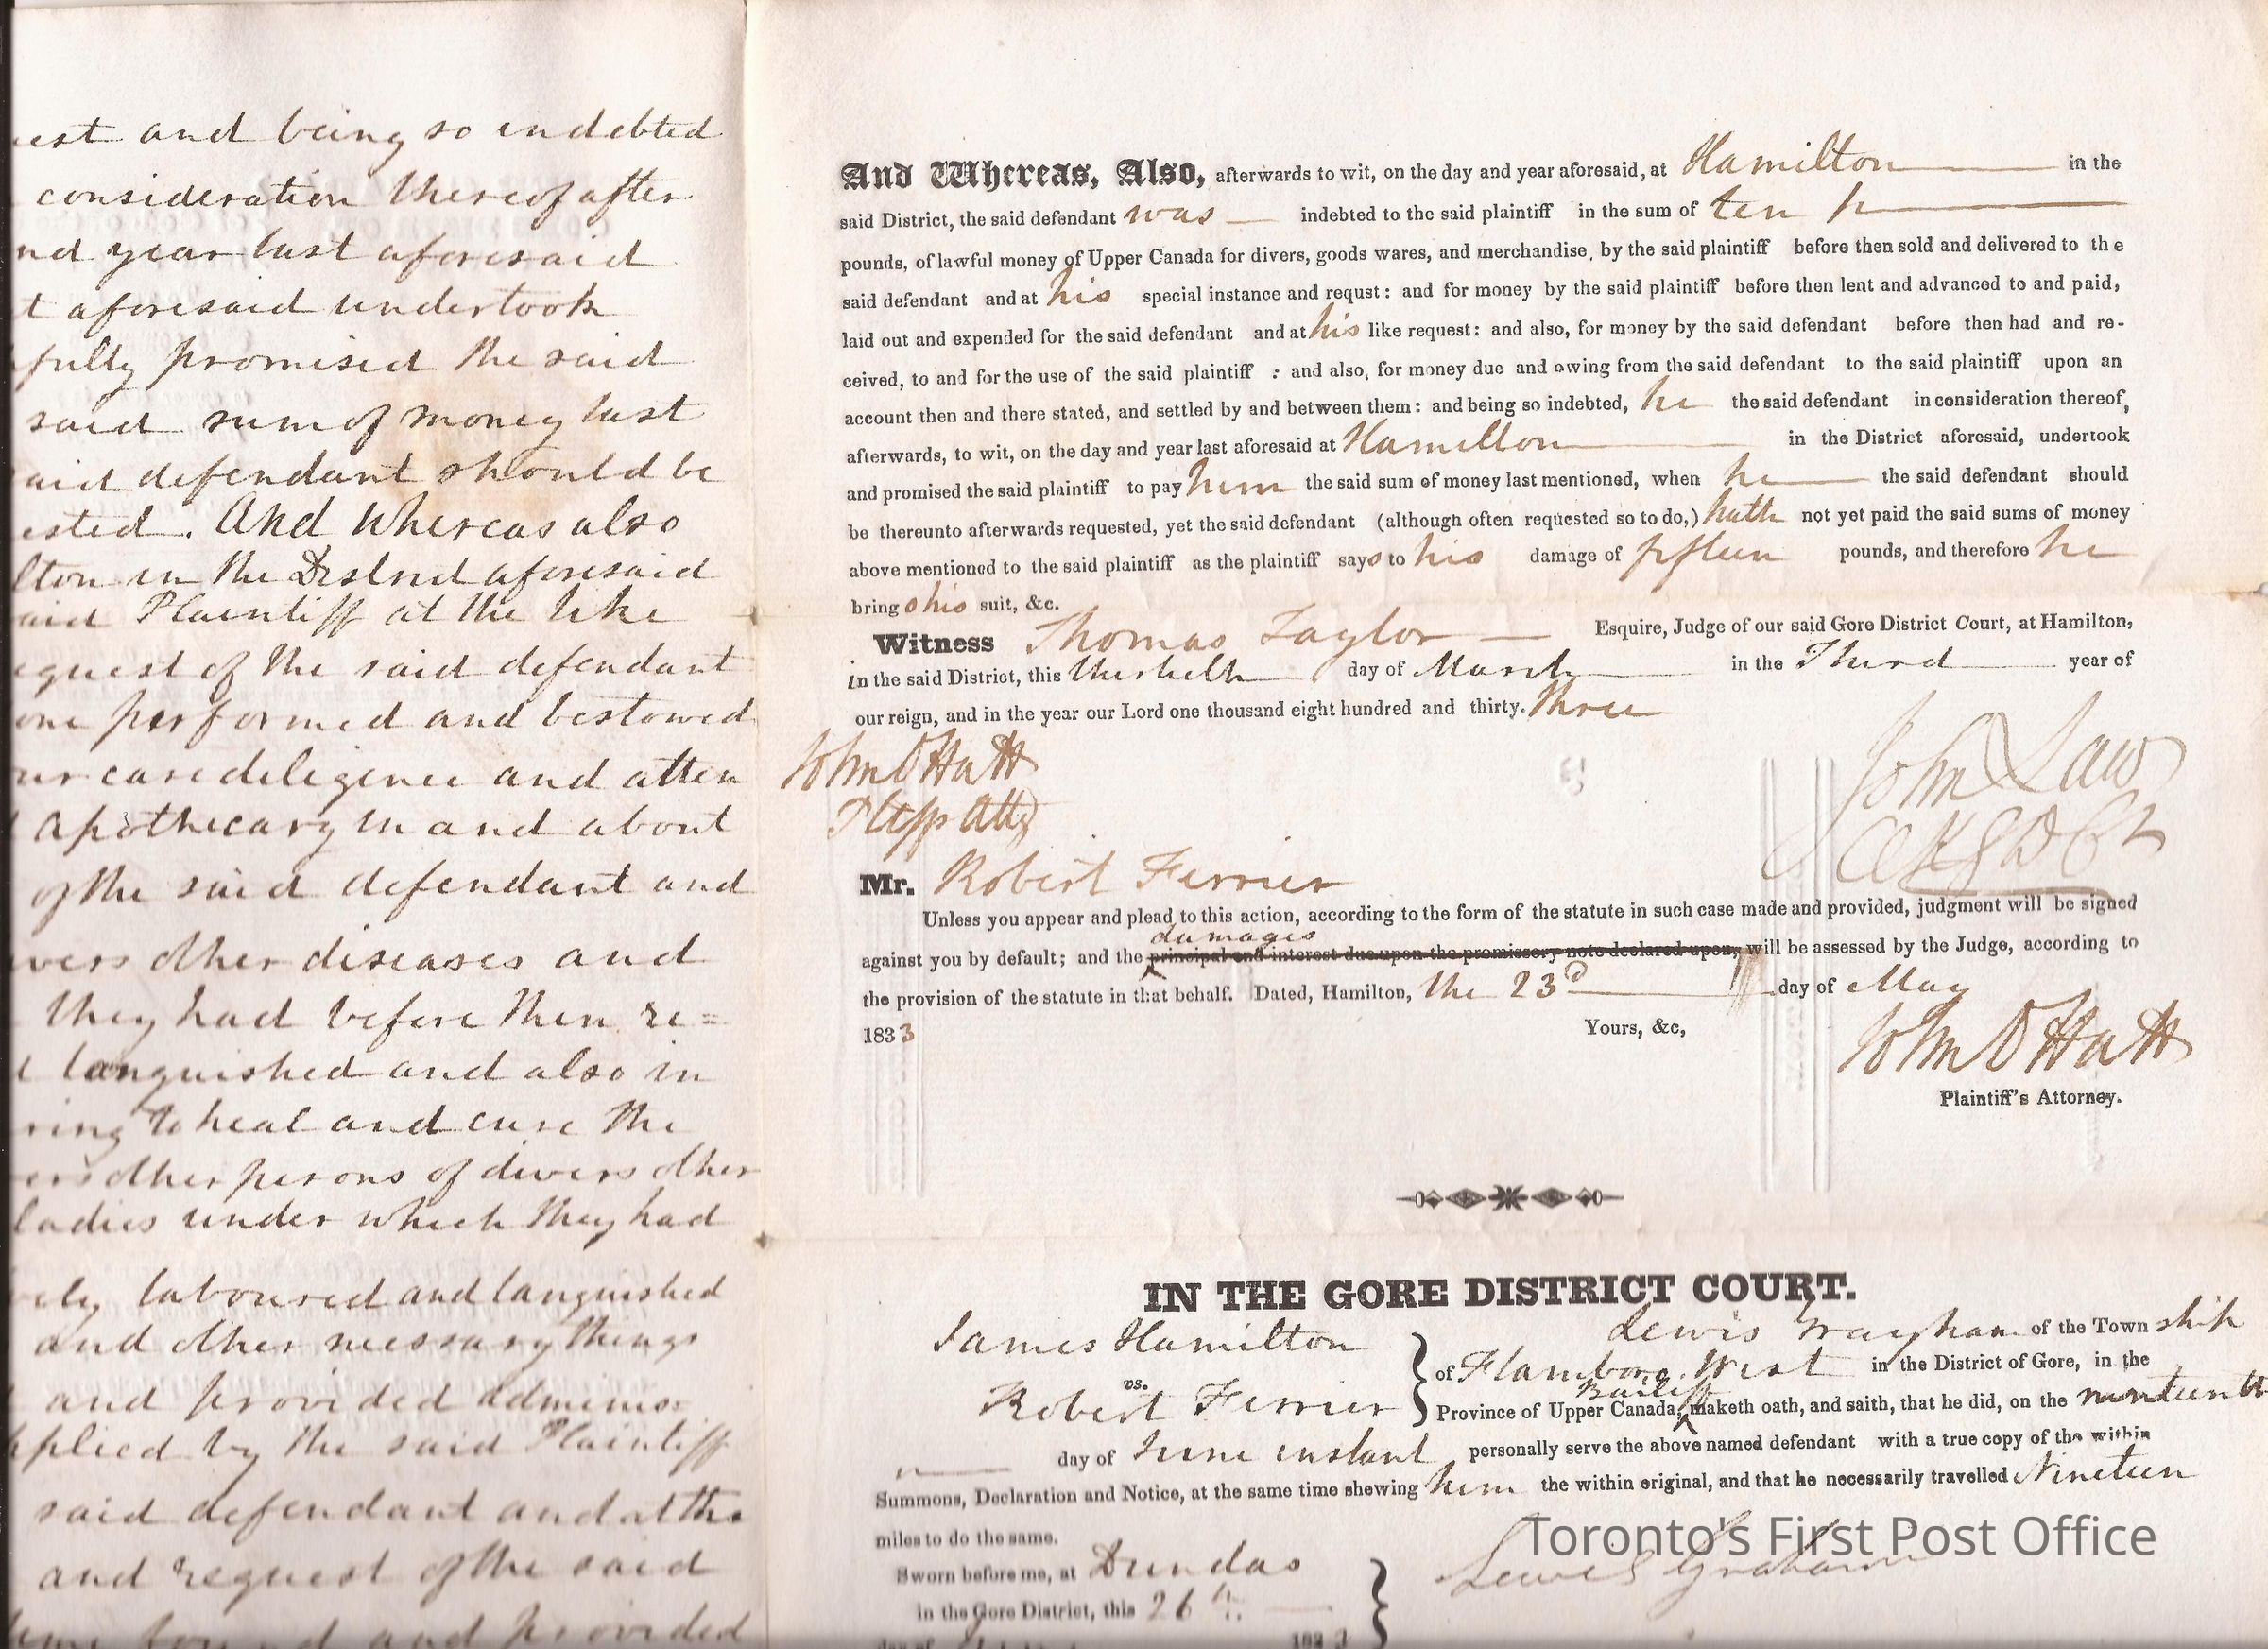 est and being so indebted
consideration thereof after
nd year last aforesaid
t aforesaid undertook
fully promised the said
said sum of money last
aid defendant should be
ested. And Whereas also
lton in the District aforesaid
aid Plaintiff at the like
quest of the said defendant
one performed and bestowed
ur care diligence and atten
Apothecary in and about
of the said defendant and
vers other diseases and
they had before then re=
languished and also in
ring to heal and cure the
ers other persons of divers other
ladies under which they had
ely laboured and languished
and other necessary things
and provided adminis=
plied by the said Plaintiff
said defendant and at the
and request of the said
found and provided
And Whereas, Also, afterwards to wit, on the day and year aforesaid, at Hamilton in the
said District, the said defendant was indebted to the said plaintiff in the sum of ten
pounds, of lawful money of Upper Canada for divers, goods wares, and merchandise, by the said plaintiff before then sold and delivered to the
said defendant and at his special instance and requst: and for money by the said plaintiff before then lent and advanced to and paid,
laid out and expended for the said defendant and at his like request: and also, for money by the said defendant before then had and re-
ceived, to and for the use of the said plaintiff : and also, for money due and owing from the said defendant to the said plaintiff upon an
account then and there stated, and settled by and between them: and being so indebted, he the said defendant in consideration thereof,
afterwards, to wit, on the day and year last aforesaid at Hamilton in the District aforesaid, undertook
and promised the said plaintiff to pay him the said sum of money last mentioned, when he the said defendant should
be thereunto afterwards requested, yet the said defendant (although often requested so to do,) hath not yet paid the said sums of money
above mentioned to the said plaintiff as the plaintiff says to his damage of fifteen pounds, and therefore he
brings his suit, &c.
Witness Thomas Taylor Esquire, Judge of our said Gore District Court, at Hamilton,
in the said District, this day of March in the Third year of
our reign, and in the year our Lord one thousand eight hundred and thirty. three
John O Hatt
Plffs Atty
John Law
Mr. Robert Ferrier
Unless you appear and plead to this action, according to the form of the statute in such case made and provided, judgment will be signed
damages
against you by default; and the principal and interest due upon the promissory note declared upon, will be assessed by the Judge, according to
the provision of the statute in that behalf. Dated, Hamilton, the 23d day of May
1833 Yours, &c,
John O Hatt
Plaintiff's Attorney.
IN THE GORE DISTRICT COURT.
James Hamilton
vs.
Robert Ferrier
Lewis Grayham of the Township
of Flamboro West in the District of Gore, in the
Bailiff
Province of Upper Canada, maketh oath, and saith, that he did, on the nineteenth
day of June instant personally serve the above named defendant with a true copy of the within
Summons, Declaration and Notice, at the same time shewing him the within original, and that he necessarily travelled Nineteen
miles to do the same.
Sworn before me, at Dundas
in the Gore District, this 26th
Lewis Graham
Toronto's First Post Office
day of 1833